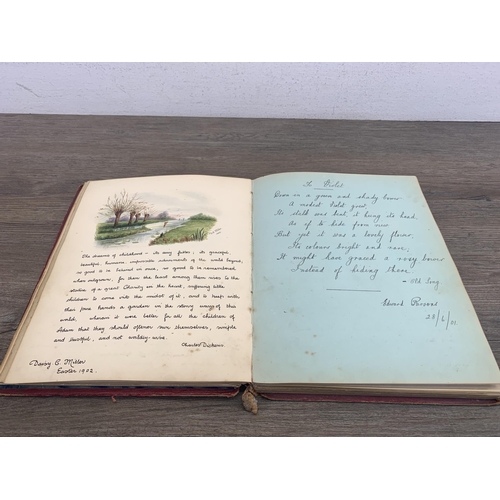 The dreams of childhood - its airy fables, its graceful,
beautiful, humane, impossible adornments of the world beyond,
so good to be believed in once, so good to be remembered
when outgrown, for then the least among them rises to the
stature of a great Charity in the heart, suffering little
children to come into the midst of it, and to keep with
their pure hands a garden in the stony ways of this
world, wherein it were better for all the children of
Adam that they should oftener sun themselves, simple
and trustful, and not worldly-wise.
Charles Dickens
Daisy E. Miller
Easter 1902.
The Violet
Down in a green and shady bower
A modest violet grew,
Its stalk was bent, it hung its head,
As if to hide from view
But yet it was a lovely flower,
Its colours bright and rare,
It might have graced a rosy bower
Instead of hiding there
- Old Song